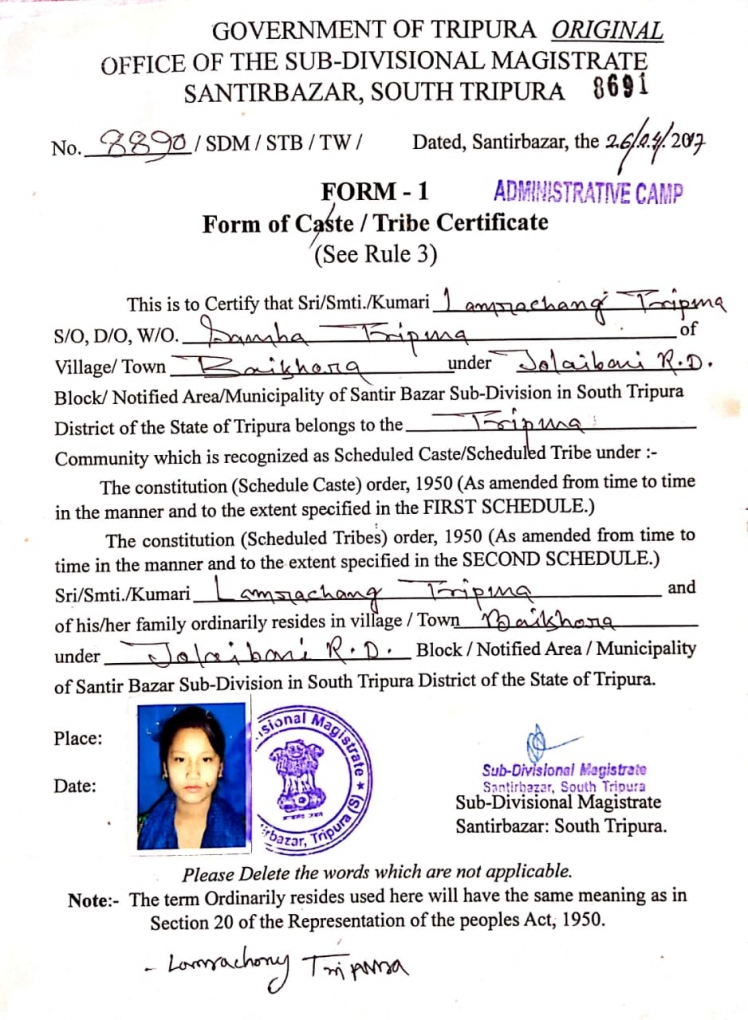 GOVERNMENT OF TRIPURA ORIGINAL
OFFICE OF THE SUB-DIVISIONAL MAGISTRATE
SANTIRBAZAR, SOUTH TRIPURA 8691
No. 8890 / SDM / STB / TW / Dated, Santirbazar, the 26/04/2017
FORM - 1 ADMINISTRATIVE CAMP
Form of Caste / Tribe Certificate
(See Rule 3)
This is to Certify that Sri/Smti./Kumari Lamrachang Tripura
S/O, D/O, W/O. Tripura of
Village/ Town Baikhora under Jolaibari R.D.
Block/ Notified Area/Municipality of Santir Bazar Sub-Division in South Tripura
District of the State of Tripura belongs to the Tripura
Community which is recognized as Scheduled Caste/Scheduled Tribe under :-
The constitution (Schedule Caste) order, 1950 (As amended from time to time
in the manner and to the extent specified in the FIRST SCHEDULE.)
The constitution (Scheduled Tribes) order, 1950 (As amended from time to
time in the manner and to the extent specified in the SECOND SCHEDULE.)
Sri/Smti./Kumari Lamrachang Tripura and
of his/her family ordinarily resides in village / Town Baikhora
under Jolaibari R.D. Block / Notified Area / Municipality
of Santir Bazar Sub-Division in South Tripura District of the State of Tripura.
Place:
Date:
isional Magistrate
irbazar, Tripura (S)
Sub-Divisional Magistrate
Santirbazar, South Tripura
Sub-Divisional Magistrate
Santirbazar: South Tripura.
Please Delete the words which are not applicable.
Note:- The term Ordinarily resides used here will have the same meaning as in
Section 20 of the Representation of the peoples Act, 1950.
- Lamrachang Tripura